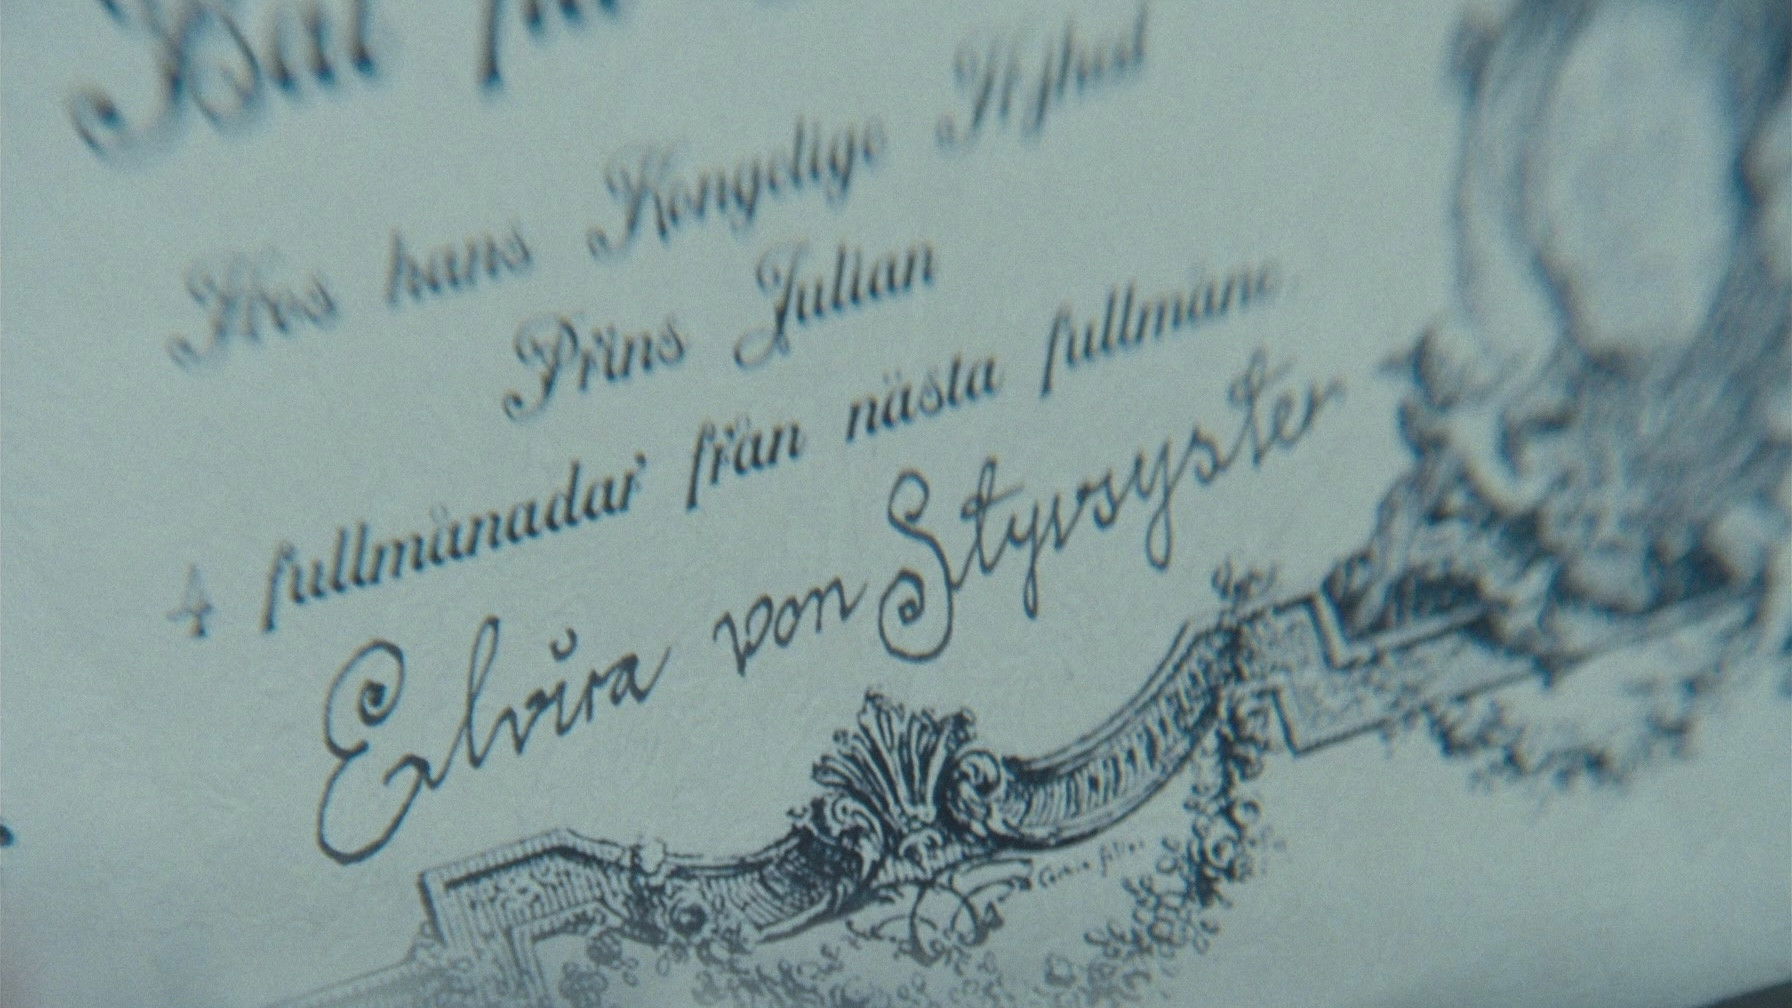 Bal för
Hos hans Kongelige Hjhud
Prins Julian
4 fullmånadar från nästa fullmåne
Elvira von Styvsyster